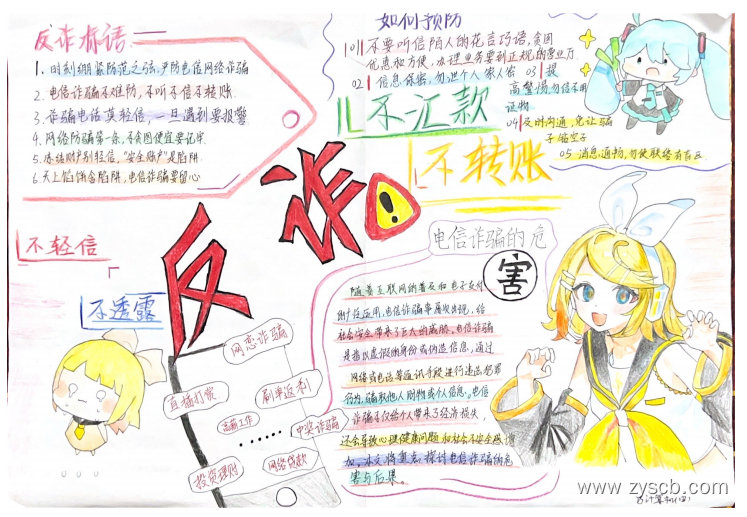 反诈标语
1. 时刻绷紧防范之弦，严防电信网络诈骗
2. 电信诈骗不难防，不听不信不转账
3. 诈骗电话莫轻信，一旦遇到要报警
4. 网络防骗第一条，不贪图便宜要记牢
5. 冻结财产别轻信，"安全账户"是陷阱
6. 天上馅饼含陷阱，电信诈骗要留心
如何预防
01 不要听信陌人的花言巧语，贪图
优惠和方便，办理业务要到正规的营业厅
02 信息保密，勿泄个人 家人密 03 提
高警惕勿信不用
证物
04 及时沟通，免让骗
子缩空子
05 消息通畅，勿使联络有盲区
不汇款
不转账
反诈
不轻信
不透露
电信诈骗的危
害
随着互联网的普及和电子支付
的广泛应用，电信诈骗率屡次出现，给
社会安全带来了巨大的威胁。电信诈骗
是指以虚假的身份或伪造信息，通过
网络或电话等通讯手段进行违法犯罪
行为，骗取他人财物或个人信息。电信
诈骗不仅给个人带来了经济损失，
还会导致心理健康问题和社会不安全感增
加，本文将重点探讨电信诈骗的危
害与后果。
网恋诈骗
直播打赏
刷单返利
高薪工作
中奖诈骗
网络贷款
投资理财
www.zyscb.com